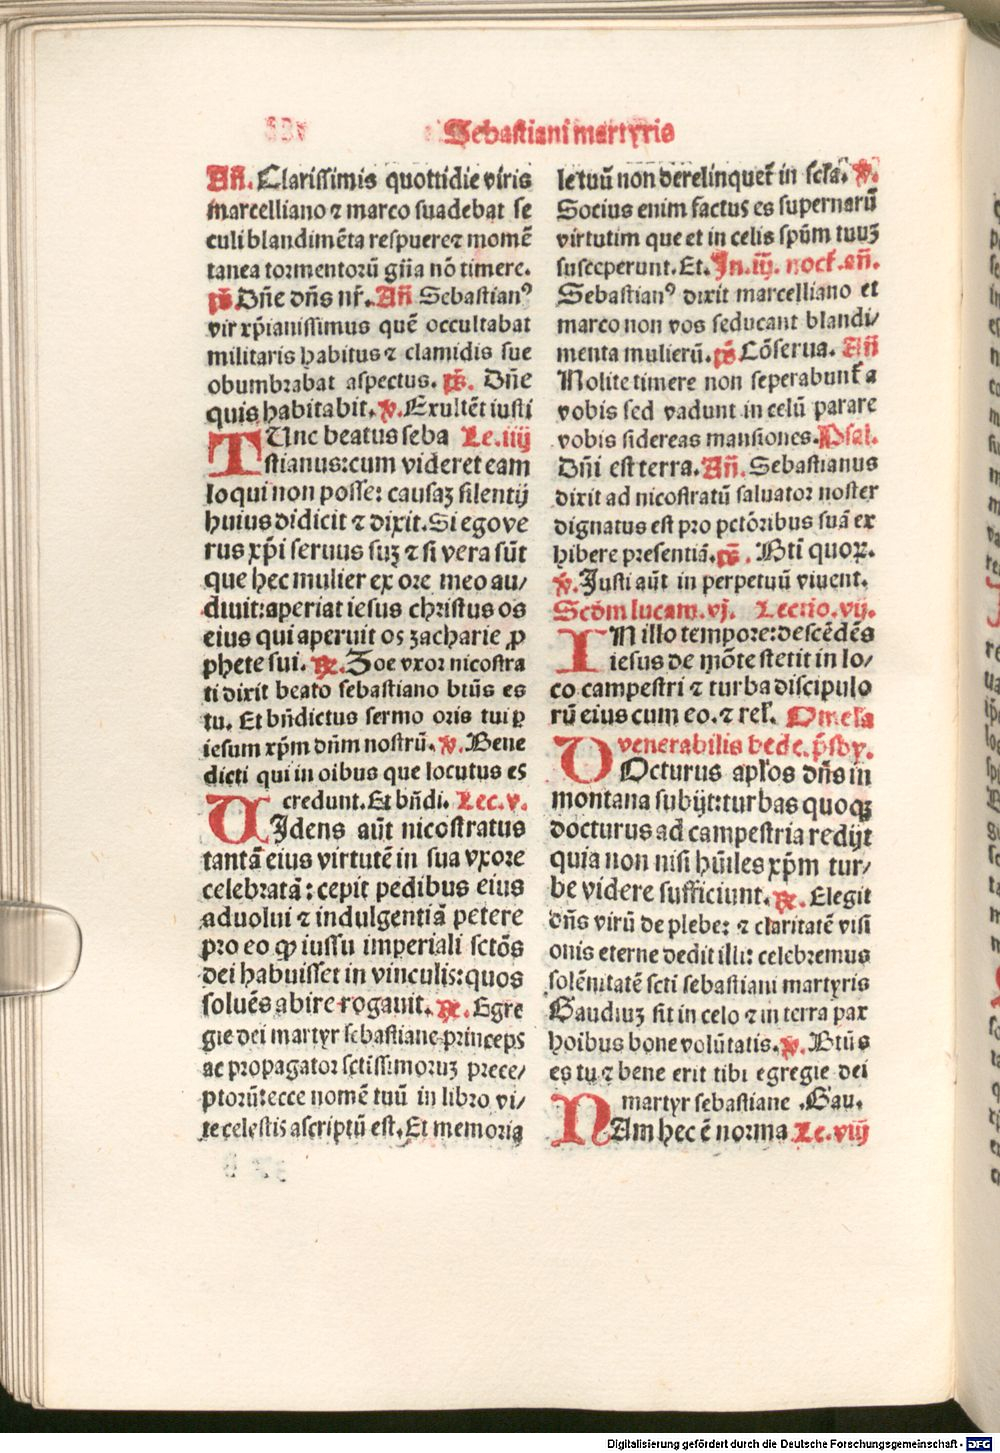 Sebastiani martyris
Añ. Clarissimis quottidie viris
marcelliano ⁊ marco suadebat se
culi blandimēta respuere⁊ momē
tanea tormentorū gña nō timere.
ps̄. Dñe dñs nr̄. Añ Sebastianꝰ
vir xp̄ianissimus quē occultabat
militaris habitus ⁊ clamidis sue
obumbrabat aspectus. ps̄. Dñe
quis habitabit. ℣. Exultēt iusti
TUnc beatus seba Le. iiij
stianus: cum videret eam
loqui non posse: causaꝫ silentij
huius didicit ⁊ dixit. Si ego ve
rus xp̄i seruus suꝫ ⁊ si vera sūt
que hec mulier ex ore meo au/
diuit: aperiat iesus christus os
eius qui aperuit os zacharie ꝓ
phete sui. ℟. Zoe vxor nicostra
ti dixit beato sebastiano btūs es
tu. Et bñdictus sermo oris tui ꝑ
iesum xp̄m dñm nostrū. ℣. Bene
dicti qui in oibus que locutus es
credunt. Et bñdi. Lec. v.
UIdens aūt nicostratus
tantā eius virtutē in sua vxore
celebratā: cepit pedibus eius
aduolui ⁊ indulgentiā petere
pro eo ꝙ iussu imperiali sctōs
dei habuisset in vinculis: quos
soluēs abire rogauit. ℟. Egre
gie dei martyr sebastiane princeps
ac propagator sctissimoruꝫ prece/
ptorū: ecce nomē tuū in libro vi/
te celestis ascriptū est. Et memoria
le tuū non derelinquet̄ in scl̄a. ℣.
Socius enim factus es supernarū
virtutim que et in celis spūm tuuꝫ
susceperunt. Et. In. iij. noct̄. añ.
Sebastianꝰ dixit marcelliano et
marco non vos seducant blandi/
menta mulierū. ps̄ Cōserua. Añ
Nolite timere non seperabunt̄ a
vobis sed vadunt in celū parare
vobis sidereas mansiones. Psal.
Dñi est terra. Añ. Sebastianus
dixit ad nicostratū saluator noster
dignatus est pro pctōribus suā ex
hibere presentiā. ps̄. Bti quoꝝ.
℣. Justi aūt in perpetuū viuent.
Scd̄m lucam. vj. Lectio. vij.
IN illo tempore: descēdēs
iesus de mōte stetit in lo/
co campestri ⁊ turba discipulo
rū eius cum eo. ⁊ rel̄. Omel̄a
venerabilis bede. p̄sby.
DOcturus apl̄os dñs in
montana subijt: turbas quoqꝫ
docturus ad campestria redijt
quia non nisi hūiles xp̄m tur/
be videre sufficiunt. ℟. Elegit
dñs virū de plebe: ⁊ claritatē visi
onis eterne dedit illi: celebremus
solēnitatē scti sebastiani martyris
Gaudiuꝫ sit in celo ⁊ in terra pax
hoibus bone volūtatis. ℣. Btūs
es tu ⁊ bene erit tibi egregie dei
martyr sebastiane. Gau.
NAm hec ē norma Le. viij
Digitalisierung gefördert durch die Deutsche Forschungsgemeinschaft - DFG